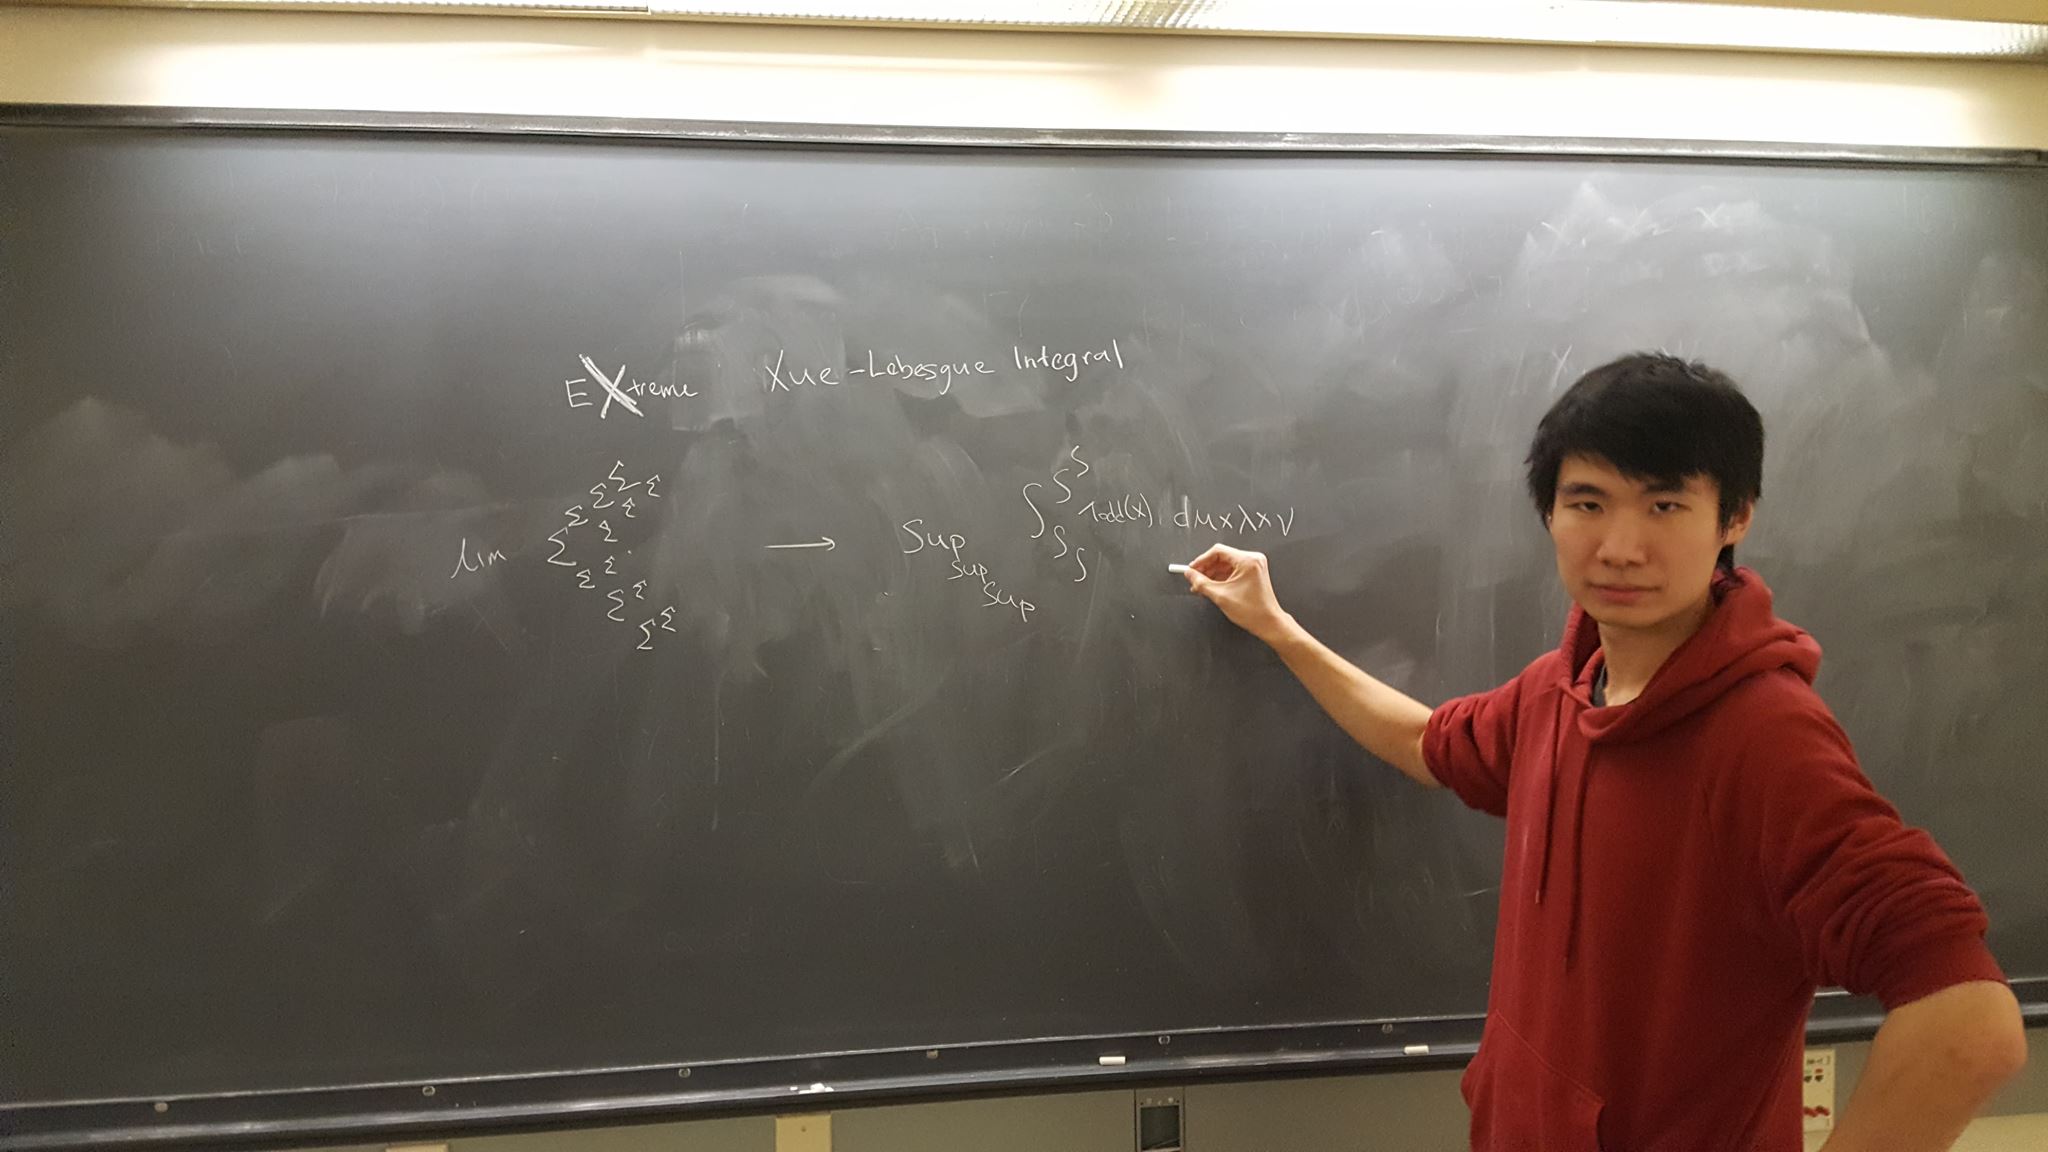 EXtreme Xue-Lebesgue Integral
lim Σ Σ Σ Σ Σ Σ Σ Σ Σ Σ Σ Σ Σ → Sup sup sup ∫ ∫ ∫ ∫ ∫ Todd(x) dμ×λ×ν